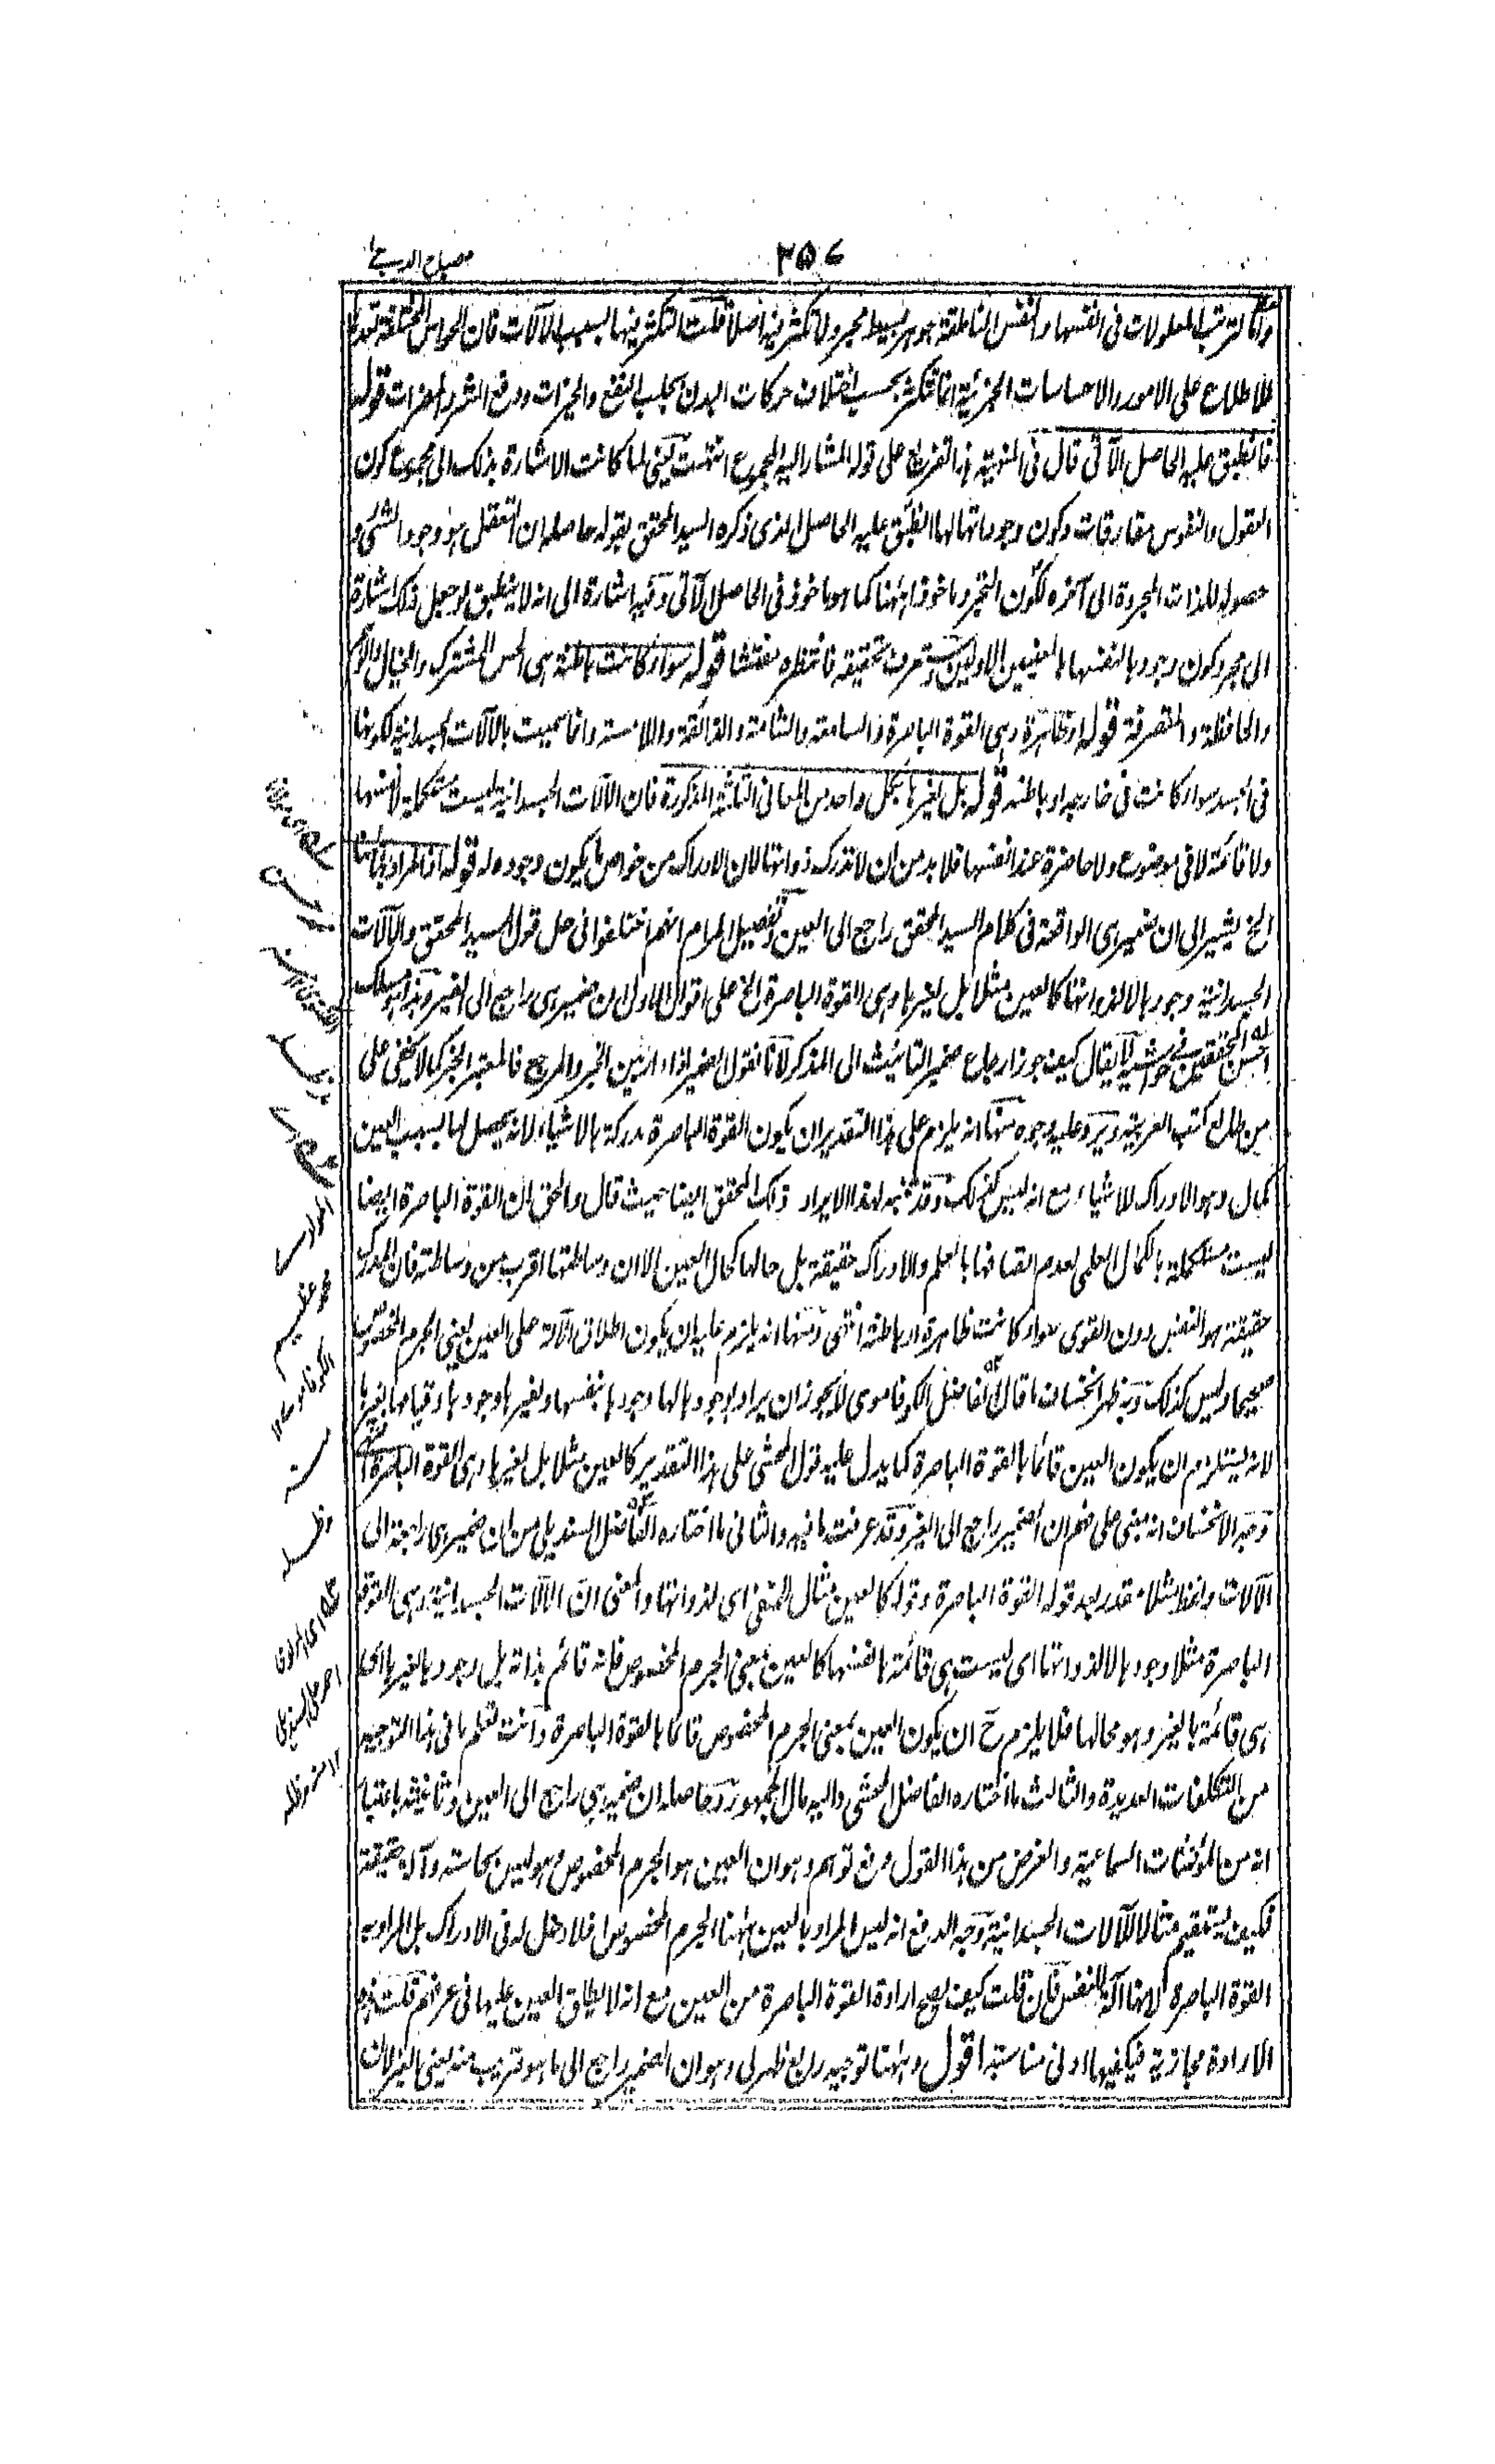 مصباح الدجى
٢٥٧
والآلة ترتب المعلولات فى انفسها والنفس الناطقة جوهر بسيط مجرد لا تكثر فيه اصلا قلت التكثر فيها بسبب الآلات فان الحواس المختلفة تعدها
للاطلاع على الامور والاحساسات الجزئية انما تتكثر بحسب اختلاف حركات البدن بجلب النفع والخيرات ودفع الشر والمضرات قوله
فانطبق عليه الحاصل الآتى قال فى المنهية هذا تفريع على قوله المشار اليه المجموع انتهت يعنى لما كانت الاشارة بذلك الى مجموع كون
العقول والنفوس مفارقات وكون وجوداتها لها انطبق عليه الحاصل الذى ذكره السيد المحقق بقوله حاصله ان التعقل هو وجود الشئ و
حصوله للذات المجردة الى آخره لكون التجرد ماخوذا ههنا كما هو ماخوذ فى الحاصل الآتى وفيه اشارة الى انه لا ينطبق لو جعل ذلك اشارة
الى مجرد كون وجودها لنفسها بالمعنيين الاولين وستعرف تحقيقه فانتظره مفتشا قوله سواء كانت باطنة هى الحس المشترك والخيال والوهم
والحافظة والمتصرفة قوله او ظاهرة وهى القوة الباصرة والسامعة والشامة والذائقة واللامسة وانما سميت بالآلات الجسدانية لكونها
فى الجسد سواء كانت فى خارجه او باطنه قوله بل لغيرها بكل واحد من المعانى الثلثة المذكورة فان الآلات الجسدانية ليست مستكملة لانفسها
ولا قائمة لا فى موضوع ولا حاضرة عند انفسها فلا بد من ان لا تدرك ذواتها لان الادراك من خواص ما يكون وجوده له قوله انما المراد بالعين ههنا
الخ يشير الى ان ضمير هى الواقعة فى كلام السيد المحقق راجع الى العين وتفصيل المرام انهم اختلفوا فى حل قول السيد المحقق والآلات
الجسدانية وجودها لا لذواتها كالعين مثلا بل لغيرها وهى القوة الباصرة الخ على اقوال الاول ان ضمير هى راجع الى الغير وهذا مسلك
احسن المحققين فى حواشيه لا يقال كيف جوز ارجاع ضمير التانيث الى المذكر لانا نقول الضمير اذا دار بين الخبر والمرجع فالمعتبر الخبر كما لا يخفى على
من طالع كتب العربية ويرد عليه وجوه منها انه يلزم على هذا التقدير ان يكون القوة الباصرة مدركة بالاشياء لانه يحصل لها بسبب العين
كمال وهو الادراك للاشياء مع انه ليس كذلك وقد تنبه لهذا الايراد ذلك المحقق ايضا حيث قال والحق ان القوة الباصرة ايضا
ليست مستكملة بالكمال العلمى لعدم اتصافها بالعلم والادراك حقيقة بل حالها كحال العين الا ان وساطتها اقرب من وساطته فان المدرك
حقيقة هو النفس دون القوى سواء كانت ظاهرة او باطنة انتهى ومنها انه يلزم عليه ان يكون اطلاق الآلة على العين يعنى الجرم المخصوص
صحيحا وليس كذلك وبه ظهر استحسان ما قال الفاضل الكوفاموى لا يجوز ان يراد بوجودها لها وجودها بنفسها ولغيرها وجودها وقيامها بغيرها
لانه يستلزم ان يكون العين قائما بالقوة الباصرة كما يدل عليه قول المحشى على هذا التقدير كالعين مثلا بل لغيرها وهى القوة الباصرة انتهى
وجه الاستحسان انه مبنى على فهم ان الضمير راجع الى الغير وقد عرفت ما فيه والثانى ما اختاره الفاضل السنديلى من ان ضمير هى راجعة الى
الآلات ولفظ مثلا مقدر بعد قوله القوة الباصرة وقوله كالعين مثال للمنفى اى لذواتها والمعنى ان الآلات الجسدانية وهى القوة
الباصرة مثلا وجودها لا لذواتها اى ليست هى قائمة بانفسها كالعين بمعنى الجرم المخصوص فانه قائم بذاته بل وجودها لغيرها اى
هى قائمة بالغير وهو محالها فلا يلزم ح ان يكون العين بمعنى الجرم المخصوص قائما بالقوة الباصرة وانت تعلم ما فى هذا التوجيه
من التكلفات العديدة والثالث ما اختاره الفاضل المحشى واليه مال الجمهور وحاصله ان ضمير هى راجع الى العين وتانيثه باعتبار
انه من المؤنثات السماعية والغرض من هذا القول دفع توهم وهو ان العين هو الجرم المخصوص وهو ليس بحاسة وآلة حقيقة
فكيف يستقيم مثالا للآلات الجسدانية وجه الدفع انه ليس المراد بالعين ههنا الجرم المخصوص اذ لا دخل له فى الادراك بل المراد به
القوة الباصرة لانها آلة للنفس فان قلت كيف يصح ارادة القوة الباصرة من العين مع انه لا يطلق العين عليها فى عرفهم قلت هذه
الارادة مجازية فيكفيها ادنى مناسبة اقول وههنا توجيه رابع ظهر لى وهو ان الضمير راجع الى ما هو قريب منه يعنى الغير لان
المولا
محمد عظيم
الكوفاموى
منه
مدظله
احمد على السنديلى
١٢ منه مدظله